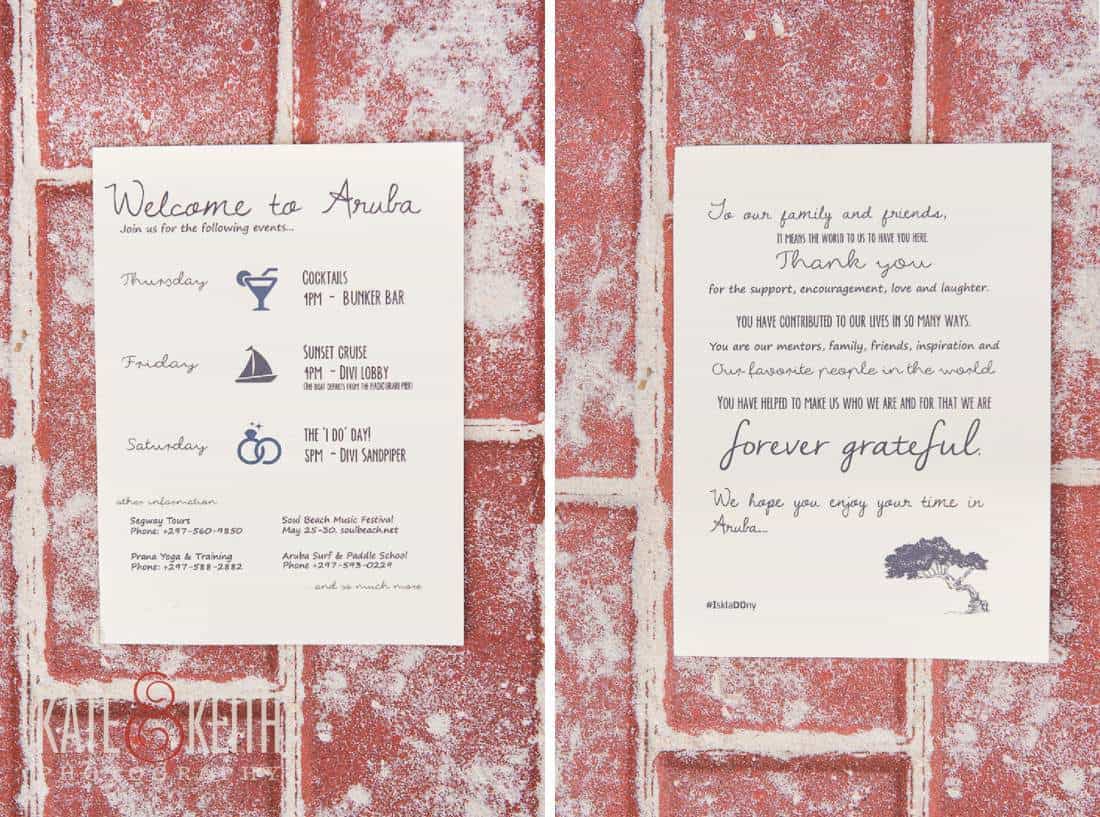 Welcome to Aruba
Join us for the following events...
Thursday
COCKTAILS
4PM - BUNKER BAR
Friday
SUNSET CRUISE
4PM - DIVI LOBBY
(THE BOAT DEPARTS FROM THE PIER)
Saturday
THE 'I DO' DAY!
5PM - DIVI SANDPIPER
other information
Segway Tours
Phone: +297-560-9850
Soul Beach Music Festival
May 25-30. soulbeach.net
Prana Yoga & Training
Phone: +297-588-2882
Aruba Surf & Paddle School
Phone +297-593-0229
...and so much more
To our family and friends,
IT MEANS THE WORLD TO US TO HAVE YOU HERE.
Thank you
for the support, encouragement, love and laughter.
YOU HAVE CONTRIBUTED TO OUR LIVES IN SO MANY WAYS.
You are our mentors, family, friends, inspiration and
Our favorite people in the world
YOU HAVE HELPED TO MAKE US WHO WE ARE AND FOR THAT WE ARE
forever grateful.
We hope you enjoy your time in
Aruba...
#IsklaDDny
KATE & KEITH
PHOTOGRAPHY